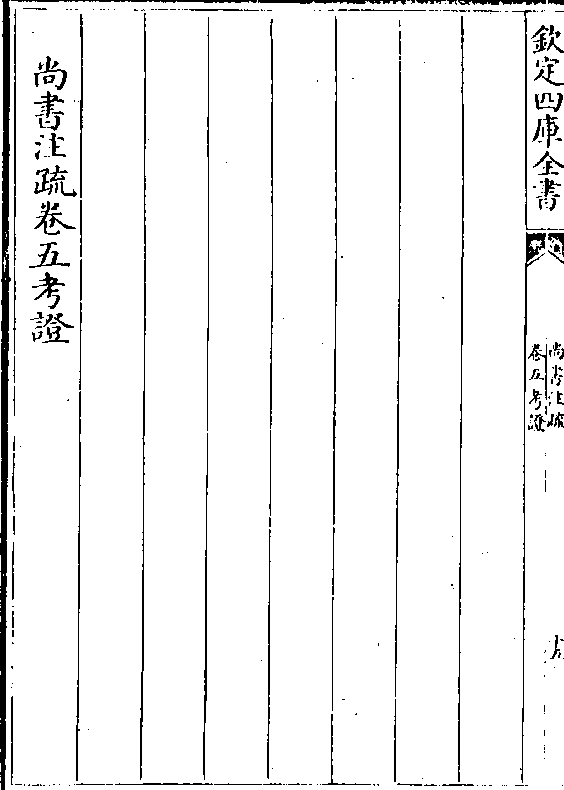 欽定四庫全書
尚書注疏
卷五考證
尚書注疏卷五考證